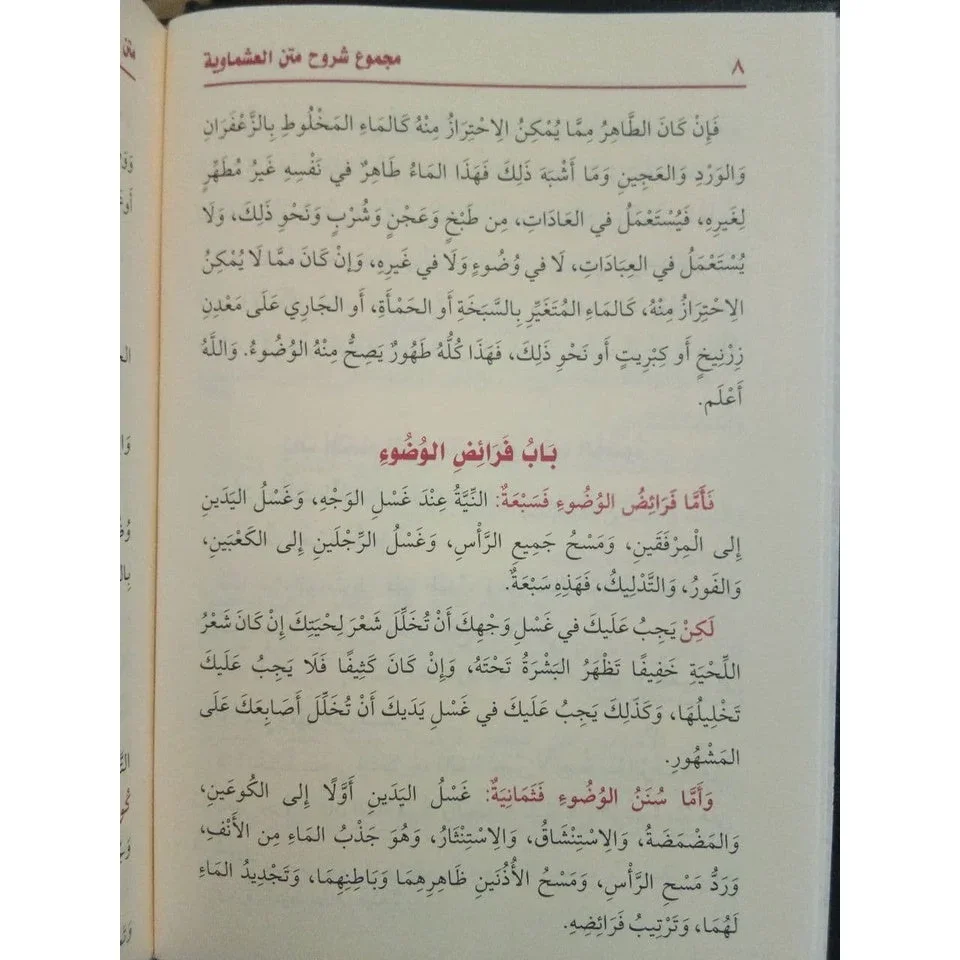 ٨
مجموع شروح متن العشماوية
فَإِنْ كَانَ الطَّاهِرُ مِمَّا يُمْكِنُ الِاحْتِرَازُ مِنْهُ كَالمَاءِ المَخْلُوطِ بِالزَّعْفَرَانِ
وَالوَرْدِ وَالعَجِينِ وَمَا أَشْبَهَ ذَلِكَ فَهَذَا المَاءُ طَاهِرٌ في نَفْسِهِ غَيرُ مُطَهِّرٍ
لِغَيرِهِ، فَيُسْتَعْمَلُ في العَادَاتِ، مِن طَبْخٍ وَعَجْنٍ وَشُرْبٍ وَنَحْوِ ذَلِكَ، وَلَا
يُسْتَعْمَلُ في العِبَادَاتِ، لَا في وُضُوءٍ وَلَا في غَيرِهِ، وَإنْ كَانَ ممَّا لَا يُمْكِنُ
الِاحْتِرَازُ مِنْهُ، كَالمَاءِ المُتَغَيِّرِ بِالسَّبَخَةِ أَو الحَمْأَةِ، أَو الجَارِي عَلَى مَعْدِنِ
زِرْنِيخٍ أَو كِبْرِيتٍ أَو نَحْوِ ذَلِكَ، فَهَذَا كُلُّهُ طَهُورٌ يَصِحُّ مِنْهُ الوُضُوءُ. وَاللَّهُ
أَعْلَم.
بَابُ فَرَائِضِ الوُضُوءِ
فَأَمَّا فَرَائِضُ الوُضُوءِ فَسَبْعَةٌ: النِّيَّةُ عِنْدَ غَسْلِ الوَجْهِ، وَغَسْلُ اليَدَينِ
إِلى الْمِرْفَقَينِ، وَمَسْحُ جَمِيعِ الرَّأْسِ، وَغَسْلُ الرِّجْلَينِ إِلى الكَعْبَينِ،
وَالفَورُ، وَالتَّدْلِيكُ، فَهَذِهِ سَبْعَةٌ.
لَكِنْ يَجِبُ عَلَيكَ في غَسْلِ وَجْهِكَ أَنْ تُخَلِّلَ شَعْرَ لِحْيَتِكَ إِنْ كَانَ شَعْرُ
اللِّحْيَةِ خَفِيفًا تَظْهَرُ البَشَرَةُ تَحْتَهُ، وَإِنْ كَانَ كَثِيفًا فَلَا يَجِبُ عَلَيكَ
تَخْلِيلُهَا، وَكَذَلِكَ يَجِبُ عَلَيكَ في غَسْلِ يَدَيكَ أَنْ تُخَلِّلَ أَصَابِعَكَ عَلَى
المَشْهُورِ.
وَأَمَّا سُنَنُ الوُضُوءِ فَثَمَانِيَةٌ: غَسْلُ اليَدَينِ أَوَّلًا إِلى الكُوعَينِ،
وَالمَضْمَضَةُ، وَالِاسْتِنْشَاقُ، وَالِاسْتِنْثَارُ، وَهُوَ جَذْبُ المَاءِ مِن الأَنْفِ،
وَرَدُّ مَسْحِ الرَّأْسِ، وَمَسْحُ الأُذُنَينِ ظَاهِرِهِمَا وَبَاطِنِهِمَا، وَتَجْدِيدُ المَاءِ
لَهُمَا، وَتَرْتِيبُ فَرَائِضِهِ.